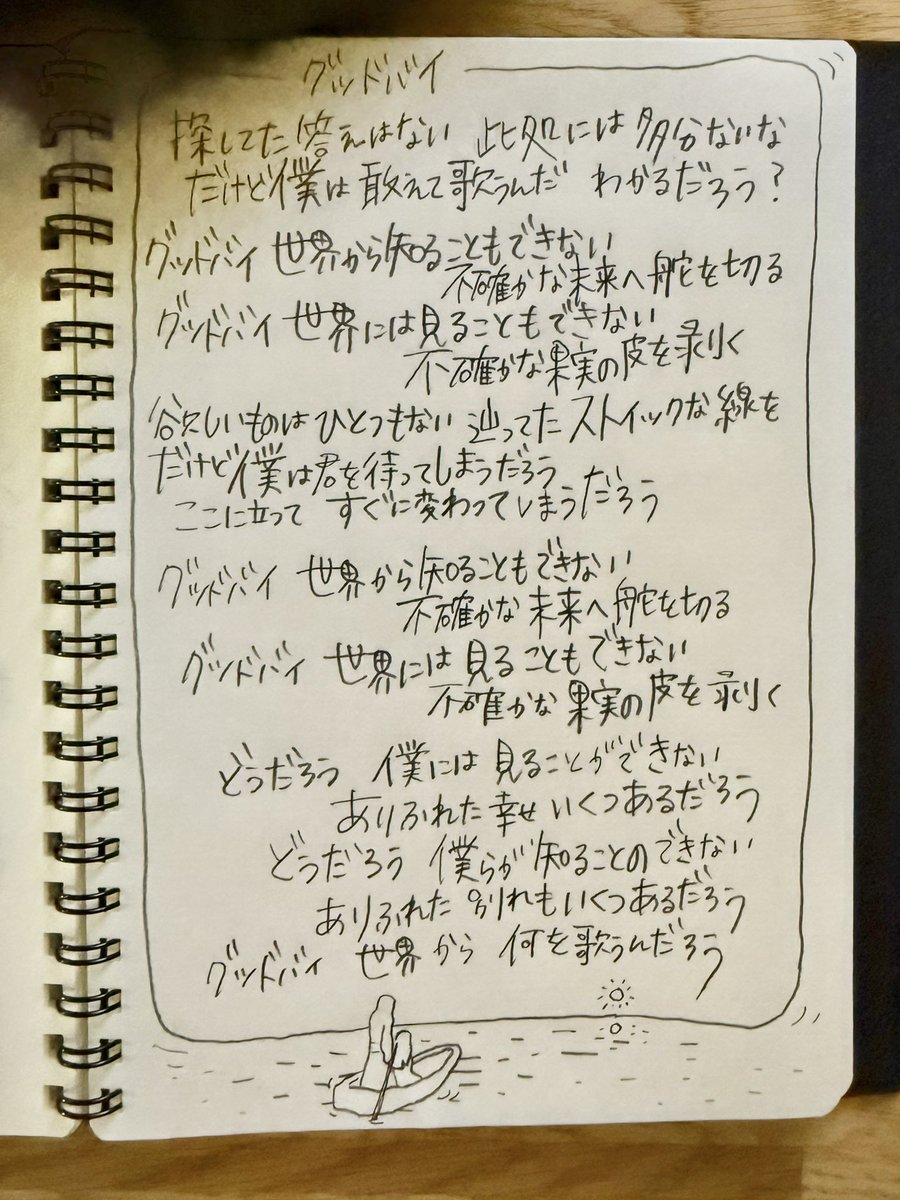 グッドバイ
探してた答えはない 此処には多分ないな
だけど僕は敢えて歌うんだ わかるだろう?
グッドバイ 世界から知ることもできない
不確かな未来へ舵を切る
グッドバイ 世界には見ることもできない
不確かな果実の皮を剥く
欲しいものはひとつもない 辿ってたストイックな線を
だけど僕は君を待ってしまうだろう
ここに立って すぐに変わってしまうだろう
グッドバイ 世界から知ることもできない
不確かな未来へ舵を切る
グッドバイ 世界には見ることもできない
不確かな果実の皮を剥く
どうだろう 僕には見ることができない
ありふれた幸せいくつあるだろう
どうだろう 僕らが知ることのできない
ありふれた別れもいくつあるだろう
グッドバイ 世界から何を歌うんだろう